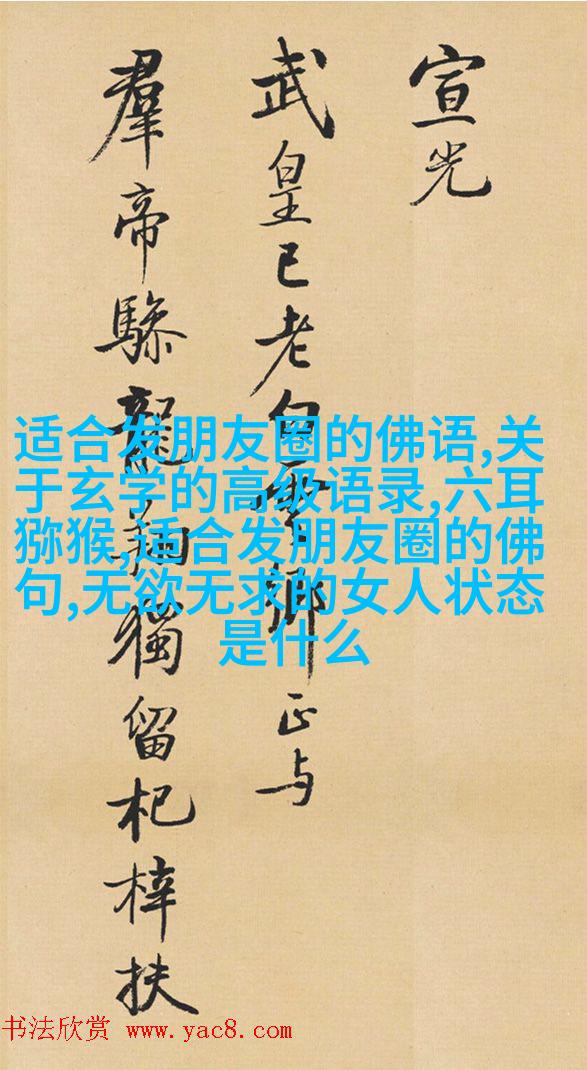 宣光
武皇已老白雲鄉正与
羣帝驂龍翔獨留杞梓扶
适合发朋友圈的佛语,关
于玄学的高级语录,六耳
猕猴,适合发朋友圈的佛
句,无欲无求的女人状态
是什么
书法欣赏 www.yac8.com